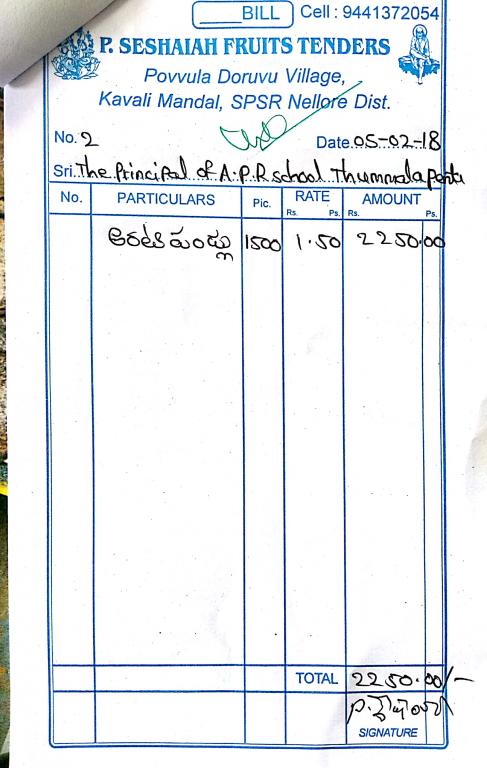 BILL Cell : 9441372054
P. SESHAIAH FRUITS TENDERS
Povvula Doruvu Village,
Kavali Mandal, SPSR Nellore Dist.
No. 2 Date. 05-02-18
Sri. The Principal of A.P.R school Thummalapenta
No. PARTICULARS Pic. RATE AMOUNT
Rs. Ps. Rs. Ps.
అరటి పండ్లు 1500 1.50 2250.00
TOTAL 2250.00/-
SIGNATURE